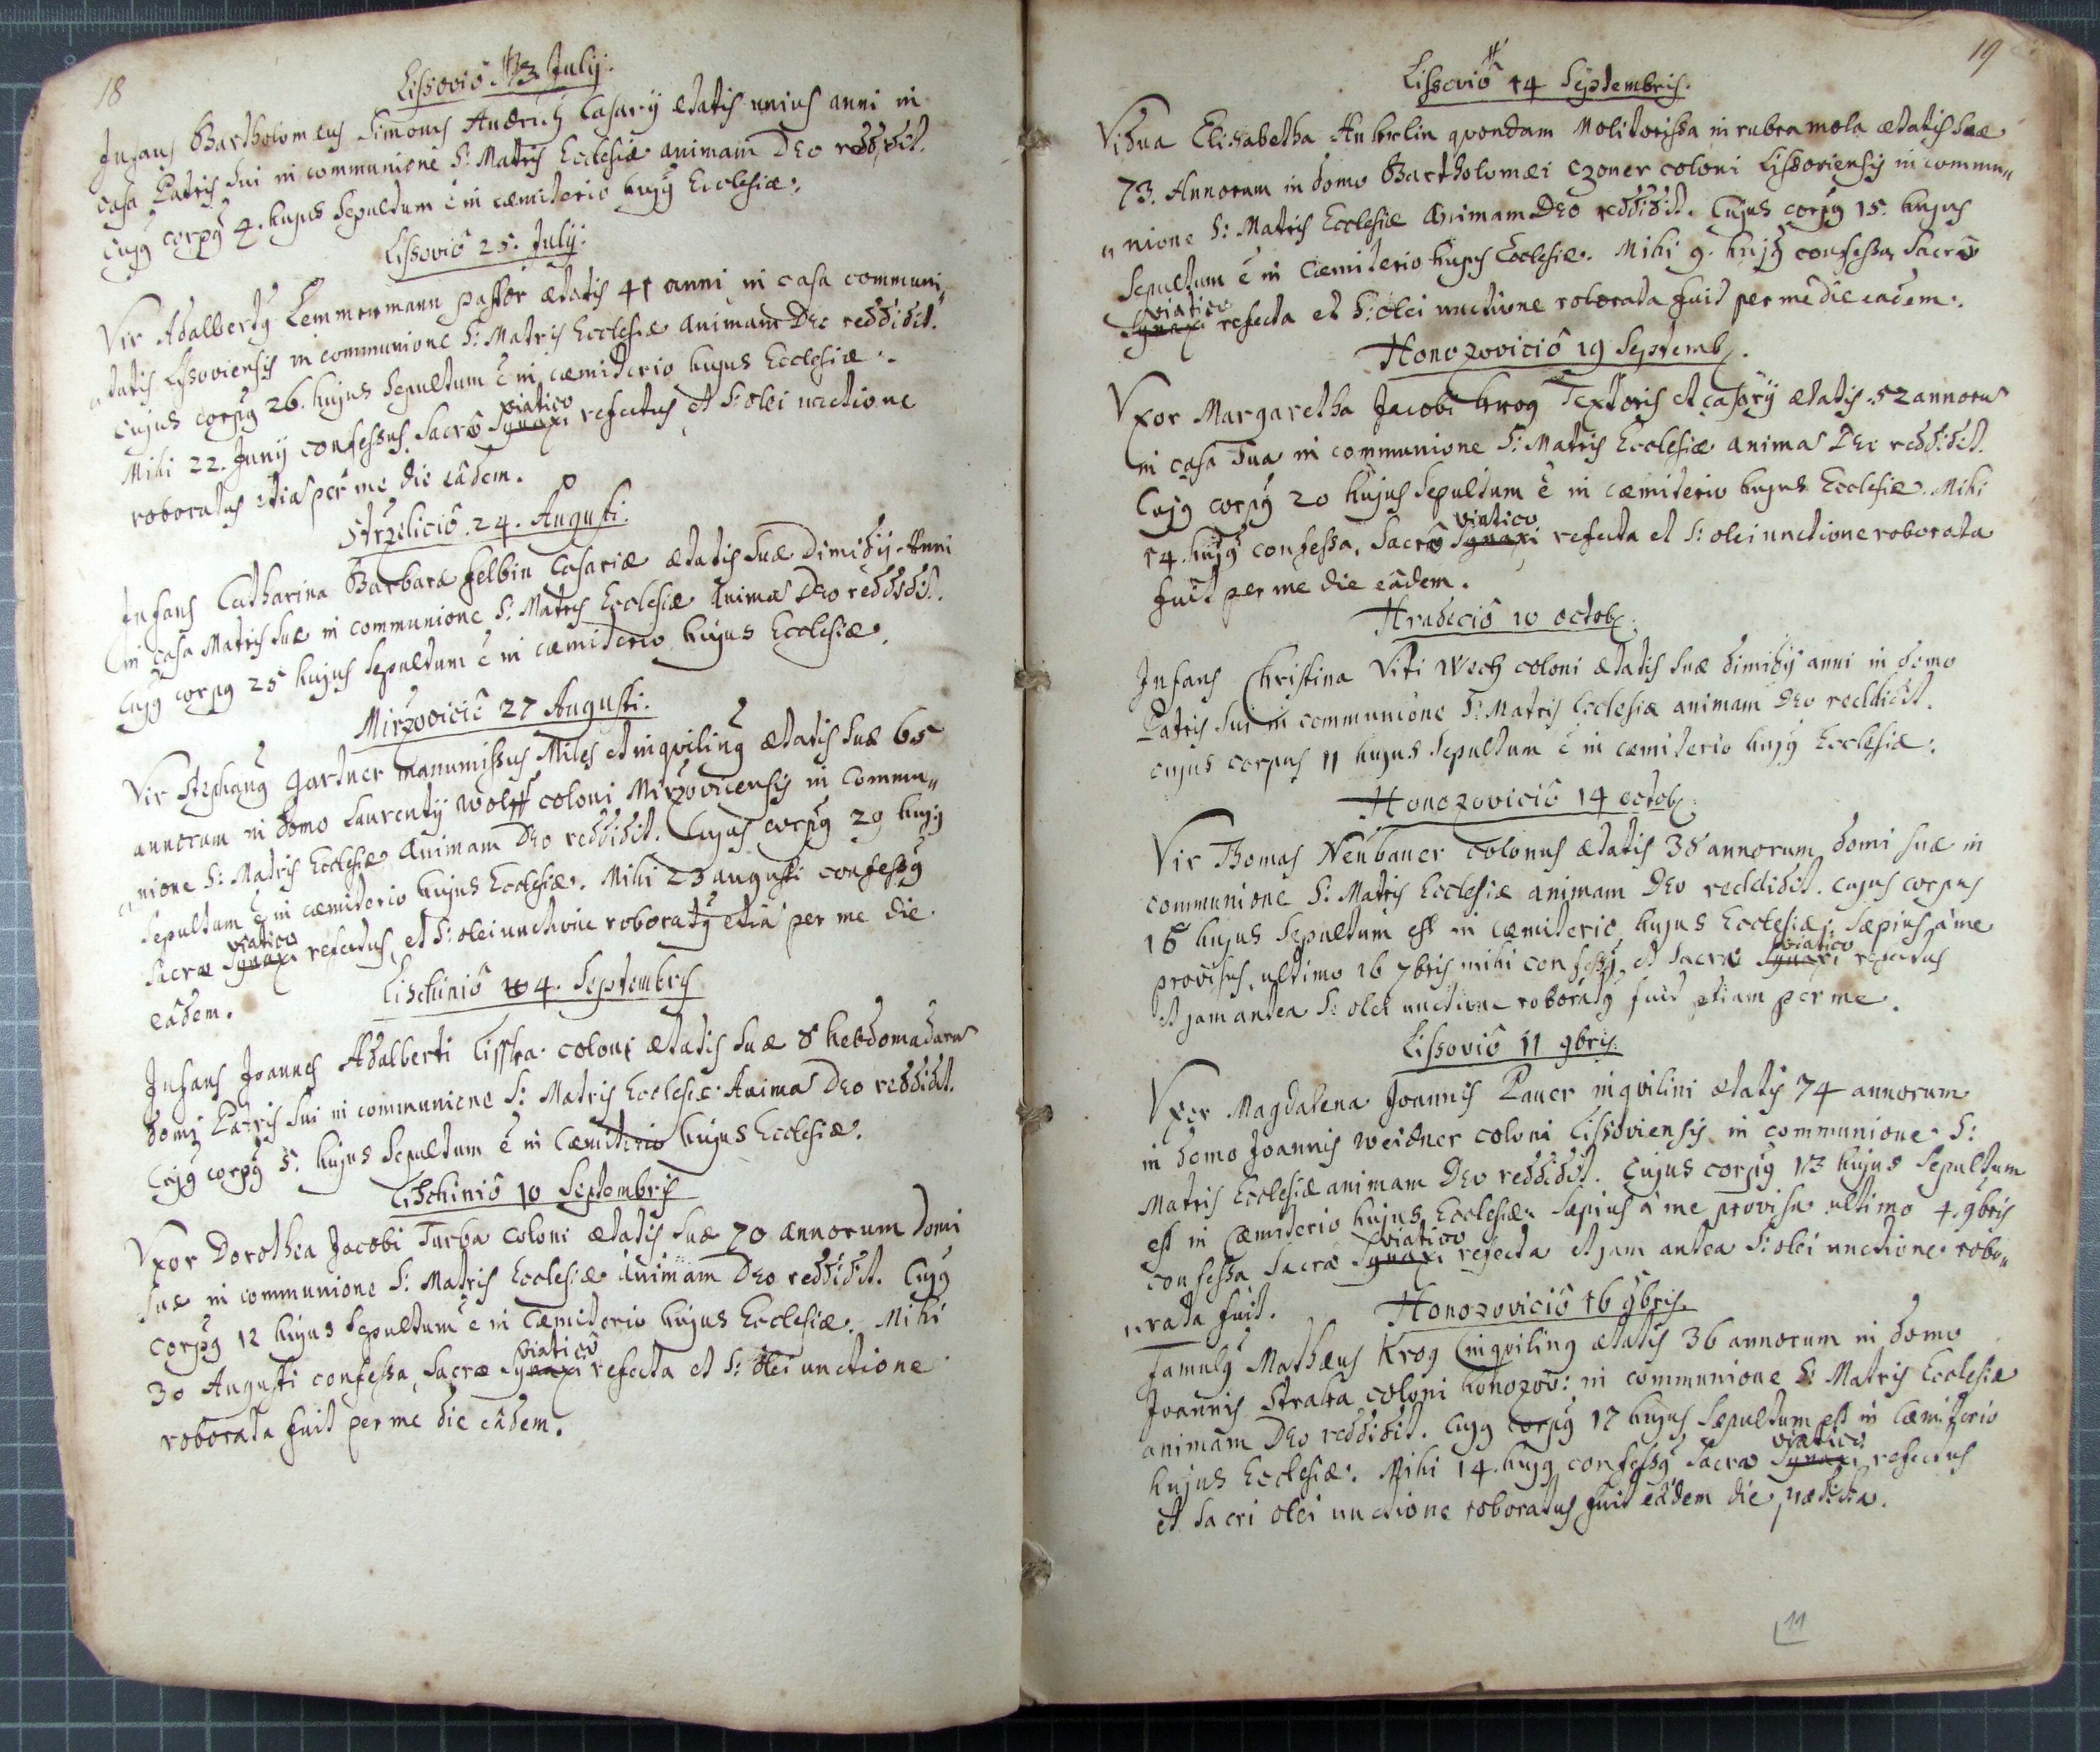 18
Lissoviô 3 July.
Infans Bartholomeus Simonis Andrich Casarÿ ætatis unius anni in
casa Patris sui in communione S: Matris Ecclesiæ animam Deo reddidit.
Cujg corpg 4. hujus sepultum ē in cæmiterio hujg Ecclesiæ.
Lissoviô 25. July.
Vir Adalbertg Lemmermann pastor ætatis 41 anni in casa communi
„tatis Lissoviensis in communione S: Matris Ecclesiæ animam Deo reddidit.
Cujus corpg 26. hujus sepultum ē in cæmiterio hujus Ecclesiæ.
Mihi 22. Junÿ confessus, Sacrô Synaxi viatico refectus et S: olei unctione
roboratus etiā per me die eâdem.
Strzeliciô 24. Augusti.
Infans Catharina Barbaræ Felbin Casariæ ætatis suæ dimidÿ Anni
in casa Matris suæ in communione S: Matris Ecclesiæ animā Deo reddidit.
Cujg corpg 25 hujus sepultum ē in cæmiterio hujus Ecclesiæ.
Mirzoviciô 27 Augusti.
Vir Stephang Gartner manumissus Miles et inqviling ætatis suæ 65
annorum in domo Laurentÿ Wolff coloni Mirzovicensis in commu„
„nione S: Matris Ecclesiæ animam Deo reddidit. Cujus corpg 29 hujg
sepultum ē in cæmiterio hujus Ecclesiæ. Mihi 23 augusti confessg
Sacro Synaxi viatico refectus, et S: olei unctione roboratg etiā per me die
eâdem.
Lischiniô 4. Septembris
Infans Joannes Adalberti Lisska coloni ætatis suæ 8 hebdomadarū
domi Patris sui in communione S: Matris Ecclesiæ Animā Deo reddidit.
Cujg corpg 5. hujus sepultum ē in Cæmiterio hujus Ecclesiæ.
Lischiniô 10 Septembris
Vxor Dorothea Jacobi Turba coloni ætatis suæ 70 annorum domi
suæ in communione S: Matris Ecclesiæ animam Deo reddidit. Cujg
corpg 12 hujus sepultum ē in Cæmiterio hujus Ecclesiæ. Mihi
30 Augusti confessa, Sacræ Synaxi viaticô refecta et S: olei unctione
roborata fuit per me die eâdem.
19
Lissoviô 14 Septembris.
Vidua Elisabetha Huberlin qvondam Molitorissa in rubra mola ætatis suæ
73. Annorum in domo Bartholomæi Czoner coloni Lissoviensis in commu„
„nione S: Matris Ecclesiæ Animam Deo reddidit. Cujus corpg 15. hujus
sepultum ē in Cæmiterio hujus Ecclesiæ. Mihi 9. hujg confessa, Sacrô
Synaxi viatico refecta et S: olei unctione roborata fuit per me die eadem.
Honozoviciô 19 Septemb.
Vxor Margaretha Jacobi Krog Textoris et Casarÿ ætatis 52 annorū
in casa sua in communione S: Matris Ecclesiæ animā Deo reddidit.
Cujg corpg 20 hujus sepultum ē in cæmiterio hujus Ecclesiæ. Mihi
14. hujg confessa, Sacrô Synaxi viatico refecta et S: olei unctione roborata
fuit per me die eâdem.
Hradeciô 10 octob.
Infans Christina Viti Wech coloni ætatis suæ dimidÿ anni in domo
Patris sui in communione S: Matris Ecclesiæ animam Deo reddidit.
cujus corpus 11 hujus sepultum ē in cæmiterio hujg Ecclesiæ.
Honozoviciô 14 octob.
Vir Thomas Neubauer colonus ætatis 38 annorum domi suæ in
communione S: Matris Ecclesiæ animam Deo reddidit. cujus corpus
16 hujus sepultum est in cæmiterio hujus Ecclesiæ; sæpius à me
provisus, ultimo 16 7bris mihi confessg et Sacro Synaxi viatico refectus
et jam antea S: olei unctione roboratg fuit etiam per me.
Lissoviô 11 9bris.
Vxor Magdalena Joannis Pauer inqvilini ætatis 74 annorum
in domo Joannis Weidner coloni Lissoviensis in communione S:
Matris Ecclesiæ animam Deo reddidit. Cujus corpg 13 hujus sepultum
est in Cæmiterio hujus Ecclesiæ. Sæpius à me provisa ultimo 4. 9bris
confessa Sacræ Synaxi viatico refecta et jam antea S: olei unctione robo„
„rata fuit.
Honozoviciô 16 9bris.
Famulg Mathæus Krog inqviling ætatis 36 annorum in domo
Joannis Straka coloni Honozov: in communione S: Matris Ecclesiæ
animam Deo reddidit. Cujg corpg 17 hujus sepultum est in Cæmiterio
hujus Ecclesiæ. Mihi 14. hujg confessg Sacro Synaxi viatico refectus
et Sacri olei unctione roboratus fuit eâdem die prædicta.
11